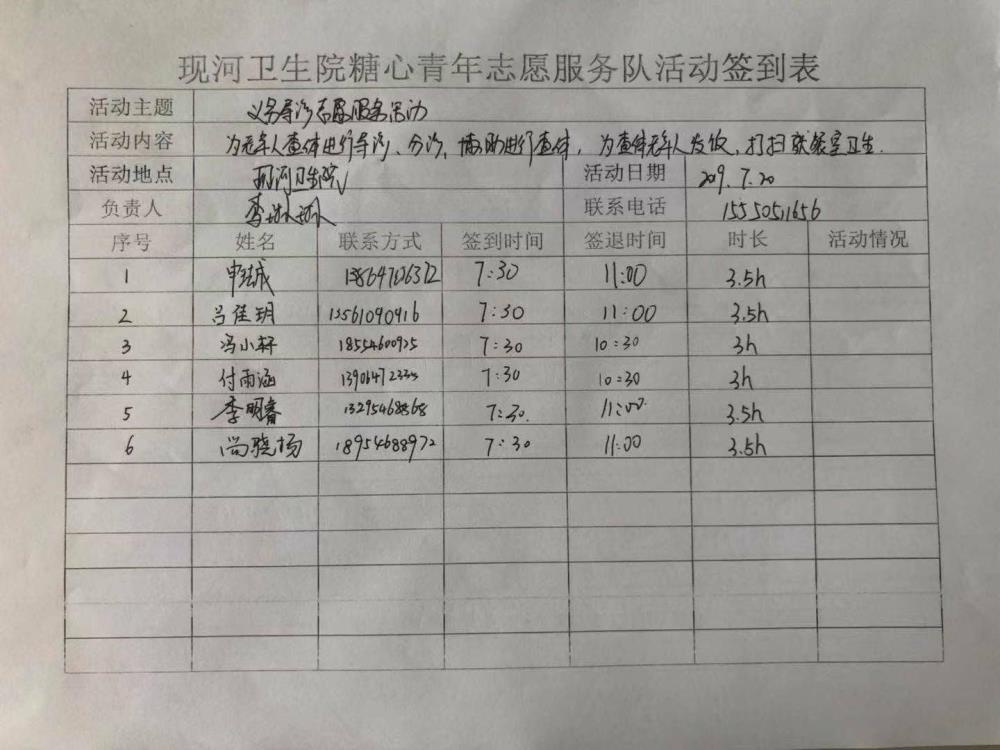 现河卫生院糖心青年志愿服务队活动签到表
活动主题 义务导诊志愿服务活动
活动内容 为老年人查体进行导诊、分诊、协助进行查体，为查体老年人发饭，打扫就餐室卫生.
活动地点 现河卫生院 活动日期 2019.7.20
负责人 李 联系电话 15550511656
序号 姓名 联系方式 签到时间 签退时间 时长 活动情况
1 申 7:30 11:00 3.5h
2 吕佳玥 13561090916 7:30 11:00 3.5h
3 冯小轩 18554600925 7:30 10:30 3h
4 付雨涵 7:30 10:30 3h
5 李明睿 13295468868 7:30. 11:00 3.5h
6 尚骁扬 18954688972 7:30 11:00 3.5h